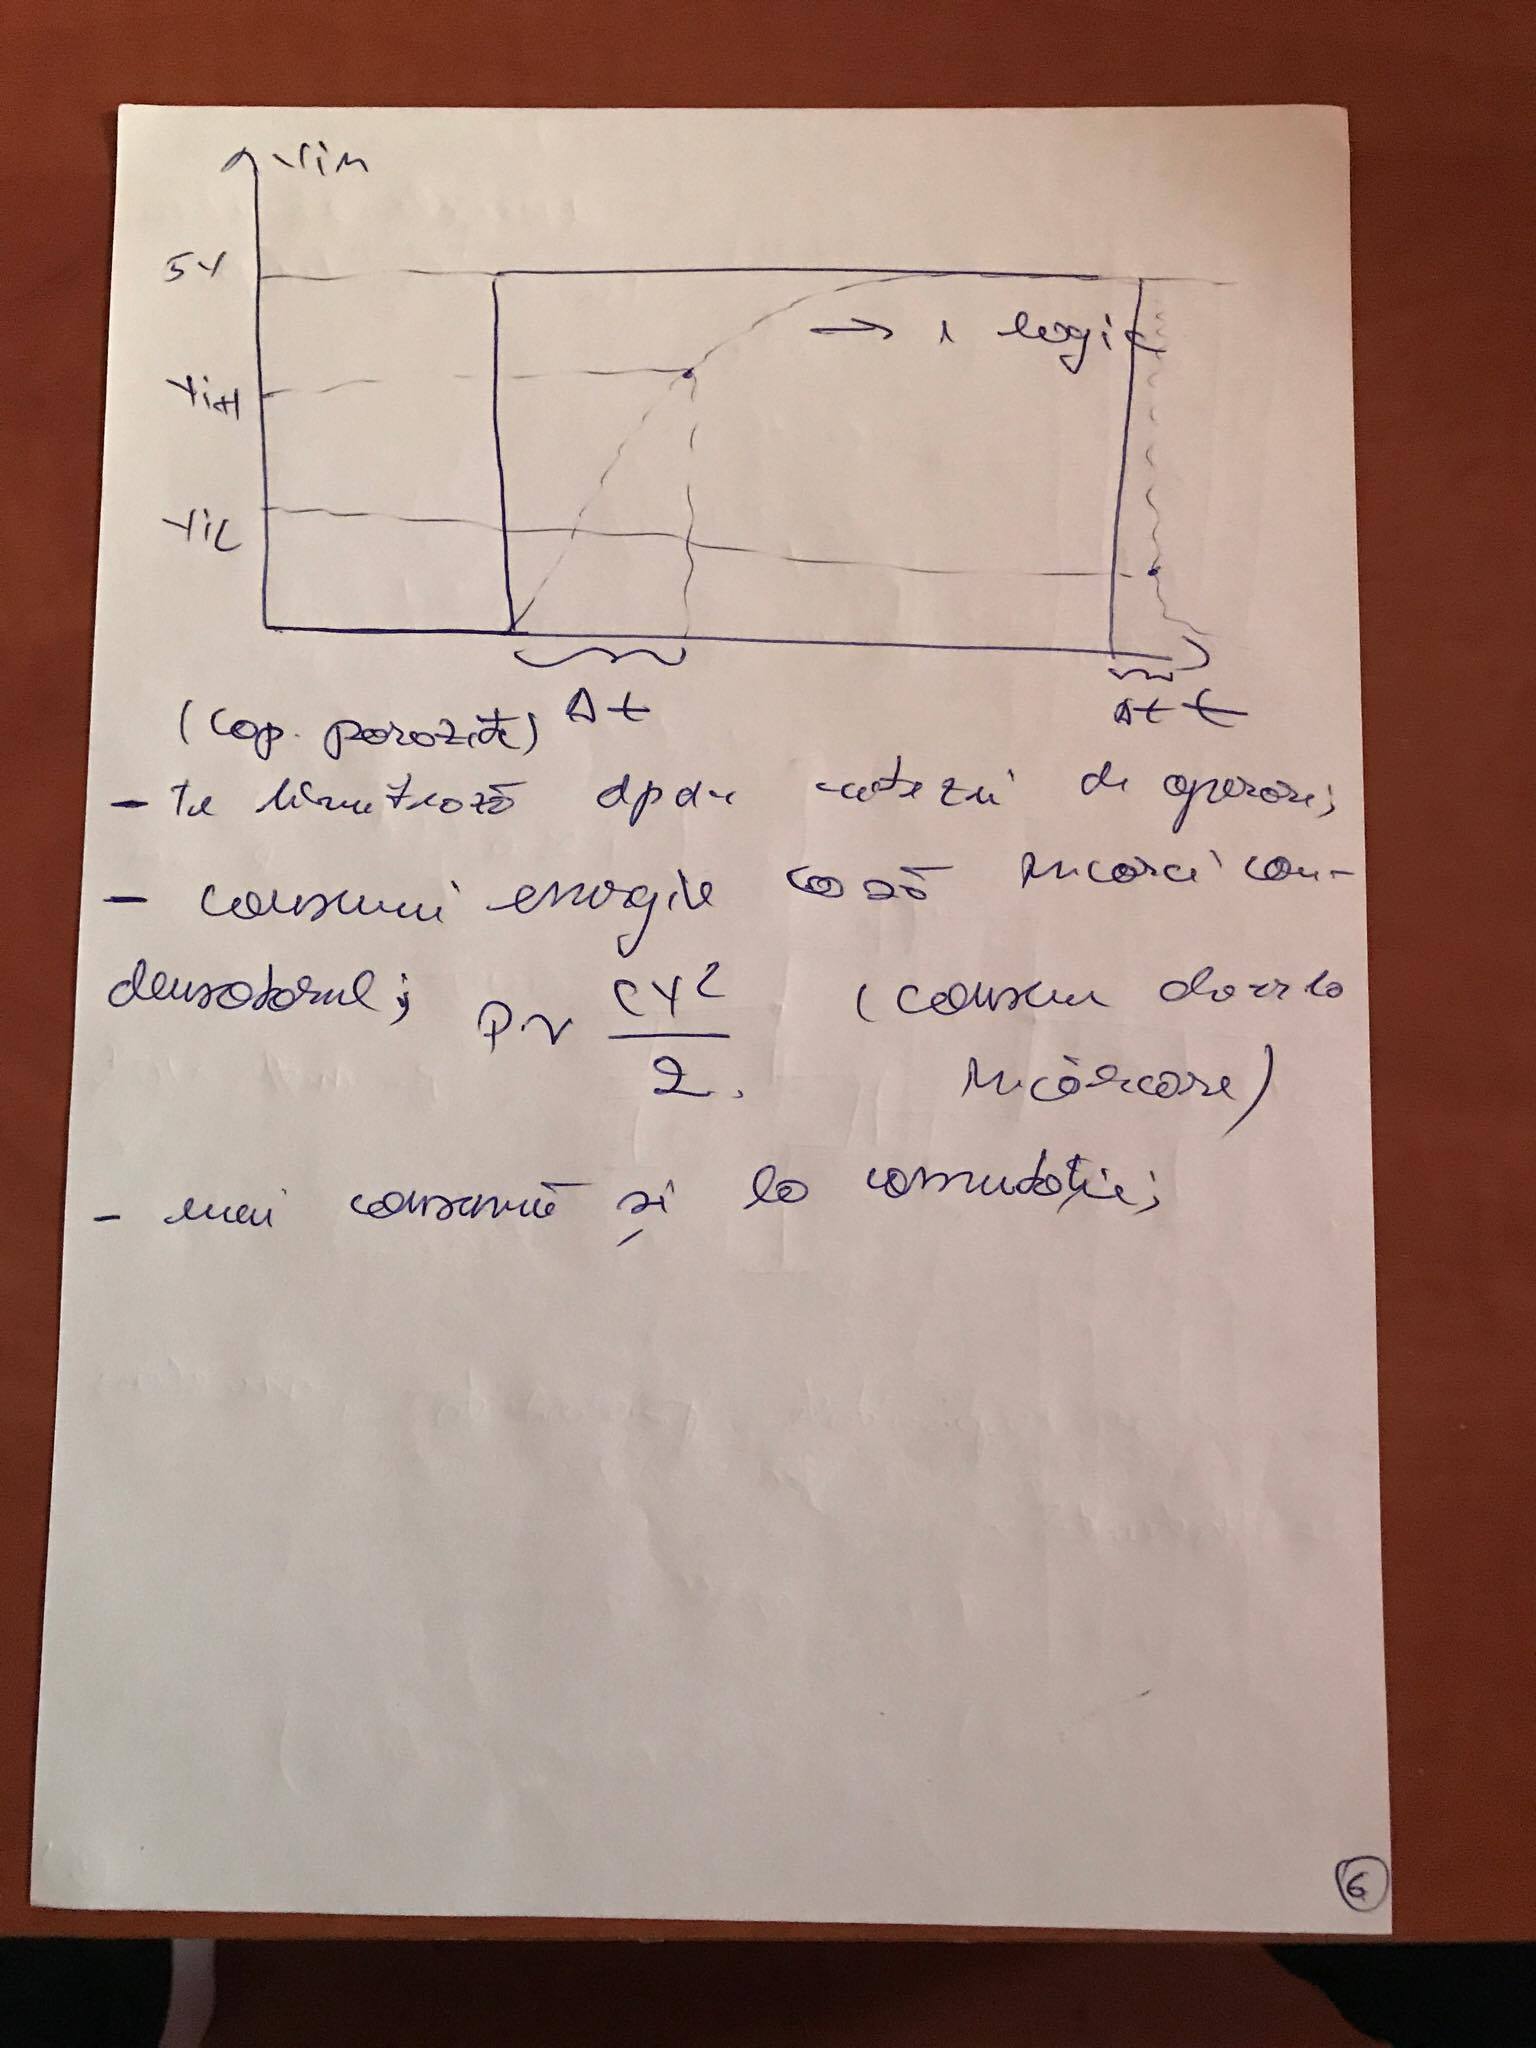 Vin
5V
ViH
→ 1 logic
ViL
Δt
Δt t
(cap. parazite)
- te limitează dpdv vitezii de operare;
- consumi energie ca să încarci con-
densatorul; P ~ CV²/2. (consum doar la
încărcare)
- mai consumă și la comutație;
6